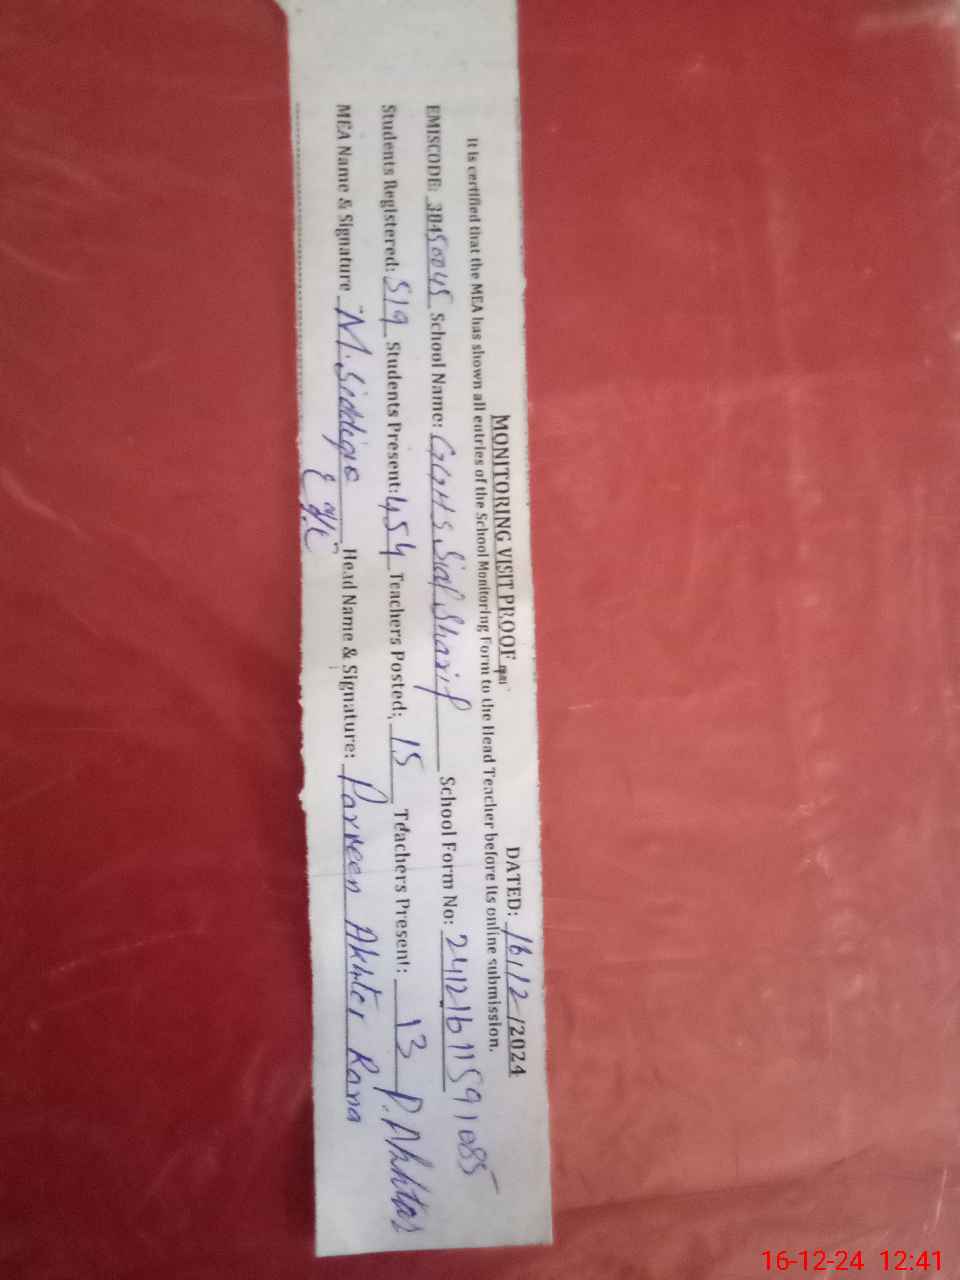 MONITORING VISIT PROOF DATED: 16/12/2024
It is certified that the MEA has shown all entries of the School Monitoring Form to the Head Teacher before its online submission.
EMISCODE: 38450045 School Name: GGHS Sial Sharif School Form No: 24121611591085
Students Registered: 519 Students Present: 454 Teachers Posted: 15 Teachers Present: 13
MEA Name & Signature M. Siddique Head Name & Signature: Parveen Akhter Rana P. Akhtar
16-12-24 12:41